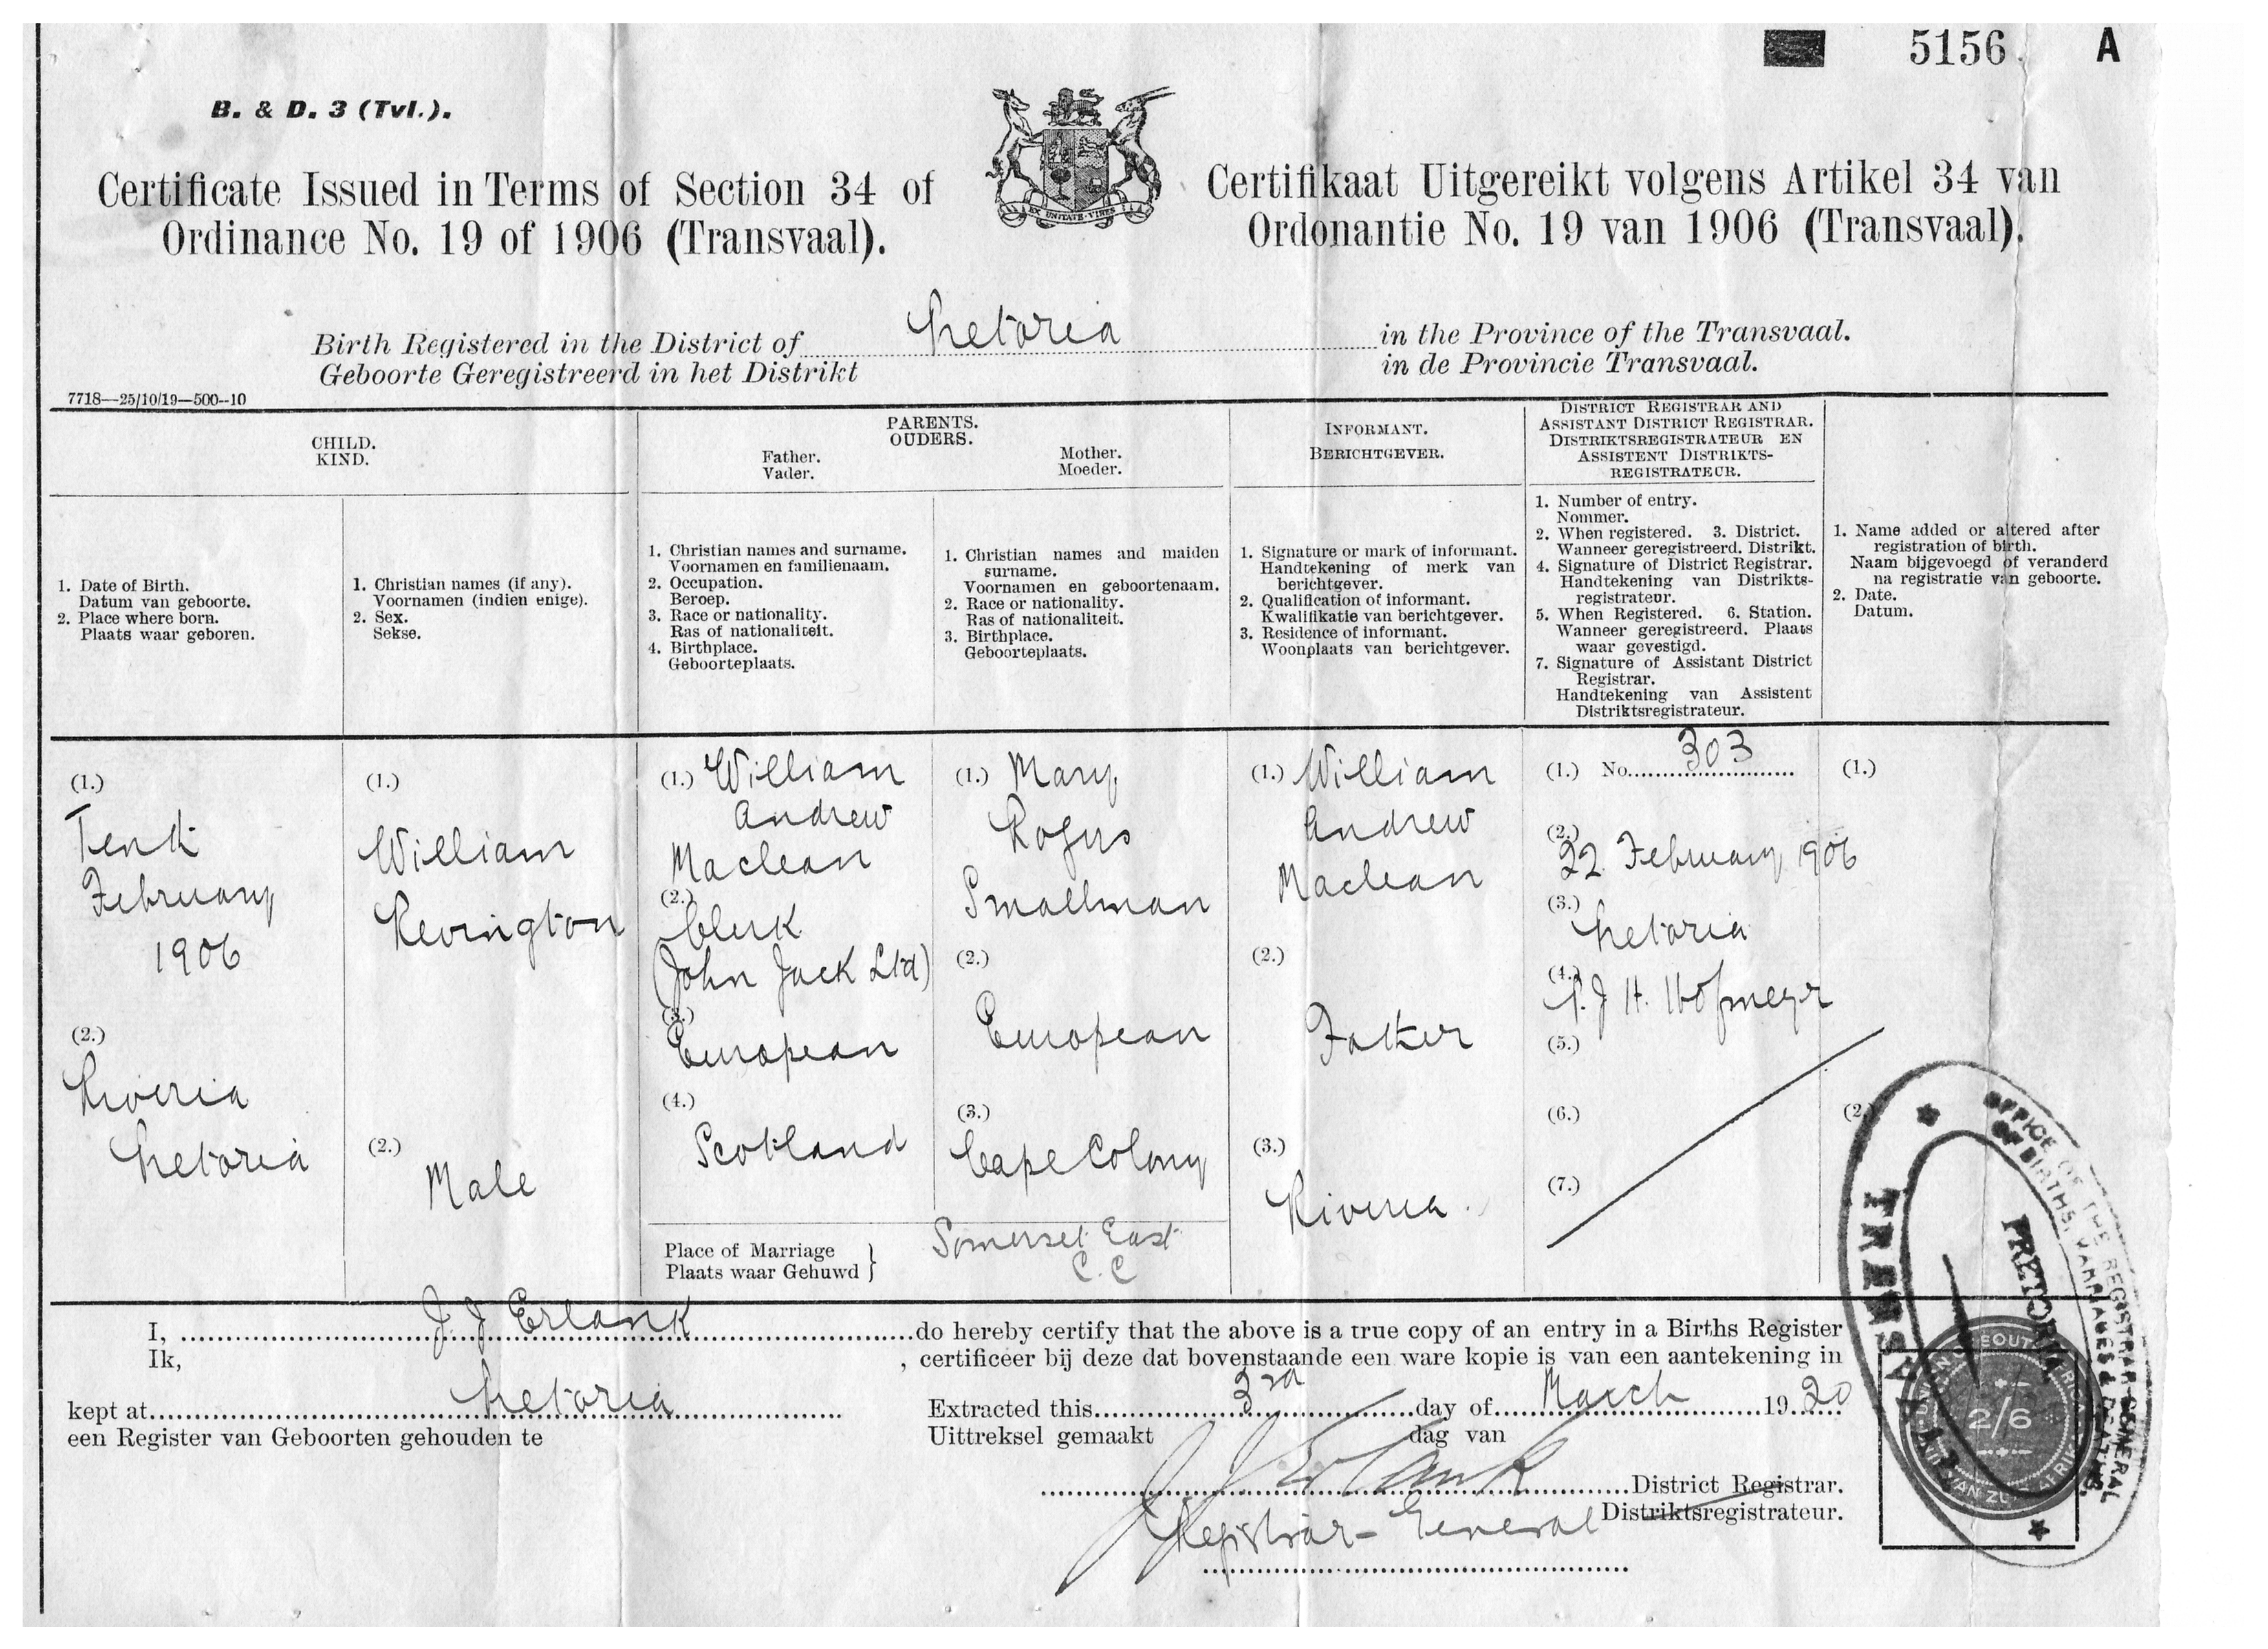 5156. A
B. & D. 3 (Tvl.).
Certificate Issued in Terms of Section 34 of
Ordinance No. 19 of 1906 (Transvaal).
EX UNITATE VIRES
Certifikaat Uitgereikt volgens Artikel 34 van
Ordonantie No. 19 van 1906 (Transvaal).
Birth Registered in the District of Pretoria in the Province of the Transvaal.
Geboorte Geregistreerd in het Distrikt in de Provincie Transvaal.
7718—25/10/19—500--10
CHILD.
KIND.
PARENTS.
OUDERS.
Father.
Vader.
Mother.
Moeder.
INFORMANT.
BERICHTGEVER.
DISTRICT REGISTRAR AND
ASSISTANT DISTRICT REGISTRAR.
DISTRIKTSREGISTRATEUR EN
ASSISTENT DISTRIKTS-
REGISTRATEUR.
1. Date of Birth.
Datum van geboorte.
2. Place where born.
Plaats waar geboren.
1. Christian names (if any).
Voornamen (indien enige).
2. Sex.
Sekse.
1. Christian names and surname.
Voornamen en familienaam.
2. Occupation.
Beroep.
3. Race or nationality.
Ras of nationaliteit.
4. Birthplace.
Geboorteplaats.
1. Christian names and maiden
surname.
Voornamen en geboortenaam.
2. Race or nationality.
Ras of nationaliteit.
3. Birthplace.
Geboorteplaats.
1. Signature or mark of informant.
Handtekening of merk van
berichtgever.
2. Qualification of informant.
Kwalifikatie van berichtgever.
3. Residence of informant.
Woonplaats van berichtgever.
1. Number of entry.
Nommer.
2. When registered. 3. District.
Wanneer geregistreerd. Distrikt.
4. Signature of District Registrar.
Handtekening van Distrikts-
registrateur.
5. When Registered. 6. Station.
Wanneer geregistreerd. Plaats
waar gevestigd.
7. Signature of Assistant District
Registrar.
Handtekening van Assistent
Distriktsregistrateur.
1. Name added or altered after
registration of birth.
Naam bijgevoegd of veranderd
na registratie van geboorte.
2. Date.
Datum.
(1.)
Tenth
February
1906
(2.)
Riveria
Pretoria
(1.)
William
Revington
(2.)
Male
(1.) William
Andrew
Maclean
(2.)
Clerk
(John Jack Ltd)
(3.)
European
(4.)
Scotland
(1.) Mary
Rogers
Smallman
(2.)
European
(3.)
Cape Colony
Place of Marriage
Plaats waar Gehuwd
Somerset East
C.C
(1.) William
Andrew
Maclean
(2.)
Father
(3.)
Riveria
(1.) No. 303
(2.)
22 February 1906
(3.)
Pretoria
(4.)
J H. Hofmeyr
(5.)
(6.)
(7.)
(1.)
(2.)
I, J. J Erlank do hereby certify that the above is a true copy of an entry in a Births Register
Ik, , certificeer bij deze dat bovenstaande een ware kopie is van een aantekening in
kept at Pretoria
een Register van Geboorten gehouden te
Extracted this 3rd day of March 1920
Uittreksel gemaakt dag van
J J Erlank District Registrar.
Registrar-General Distriktsregistrateur.
OFFICE OF THE REGISTRAR GENERAL
OF BIRTHS, MARRIAGES & DEATHS.
PRETORIA
TRANSVAAL
2/6